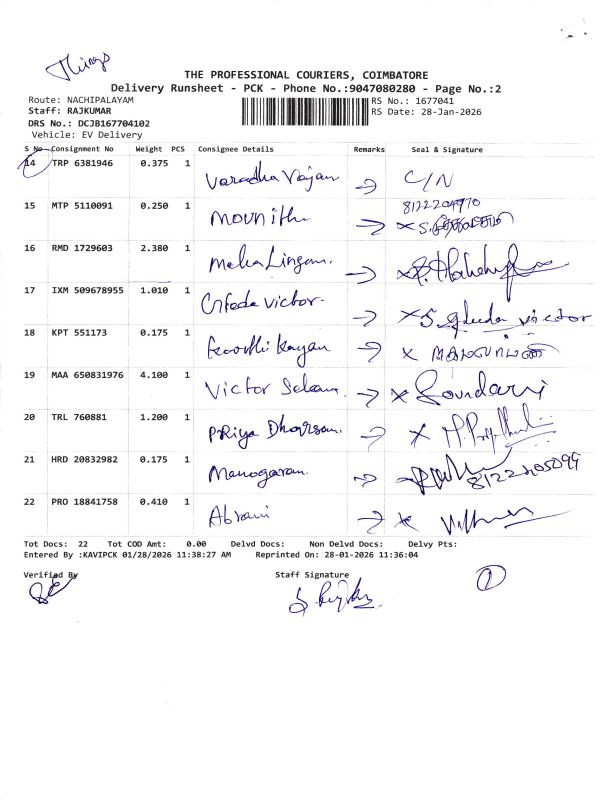 Things
THE PROFESSIONAL COURIERS, COIMBATORE
Delivery Runsheet - PCK - Phone No.:9047080280 - Page No.:2
Route: NACHIPALAYAM RS No.: 1677041
Staff: RAJKUMAR RS Date: 28-Jan-2026
DRS No.: DCJB167704102
Vehicle: EV Delivery
S No Consignment No Weight PCS Consignee Details Remarks Seal & Signature
14 TRP 6381946 0.375 1 Varadha Rajan C/N
15 MTP 5110091 0.250 1 Mounith 8122204970
16 RMD 1729603 2.380 1 Maha Lingam.
17 IXM 509678955 1.010 1 Victor. x S. victor
18 KPT 551173 0.175 1 x
19 MAA 650831976 4.100 1 Victor x Soundari
20 TRL 760881 1.200 1 Priya x
21 HRD 20832982 0.175 1 Manogaran
22 PRO 18841758 0.410 1 Abrami x
Tot Docs: 22 Tot COD Amt: 0.00 Delvd Docs: Non Delvd Docs: Delvy Pts:
Entered By :KAVIPCK 01/28/2026 11:38:27 AM Reprinted On: 28-01-2026 11:36:04
Verified By Staff Signature
1